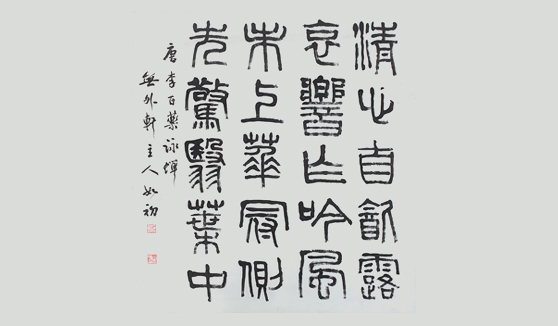 清心自飲露
哀響乍吟風
未上華冠側
先驚翳葉中
唐李百藥詠蟬
無外軒主人如初